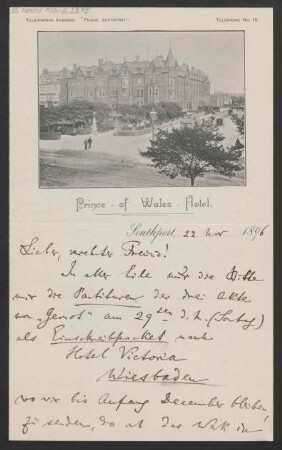 TELEGRAPHIC ADDRESS. "PRINCE SOUTHPORT".
TELEPHONE No. 16
Prince of Wales Hotel.
Southport, 22 Nov 1896
Lieber, verehrter Freund!
In aller Eile nur die Bitte
mir die Partituren der drei Akte
von „Gernot" am 29ten d. M. (Sontag)
als Einschreibpacket nach
Hotel Victoria
Wiesbaden
wo wir bis Anfang December bleiben,
zu senden, da ich das Werk in